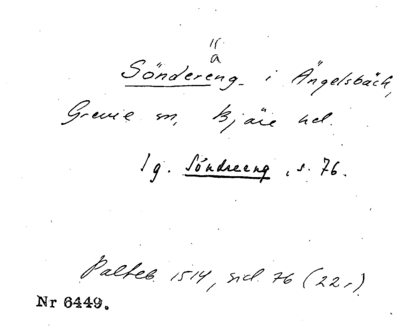 "
a
Söndereng i Ängelsbäck,
Grevie sn, Bjäre hd.
Ig. Söndreeng, s. 76.
Palteb. 1514, sid. 76 (22r)
Nr 6449.